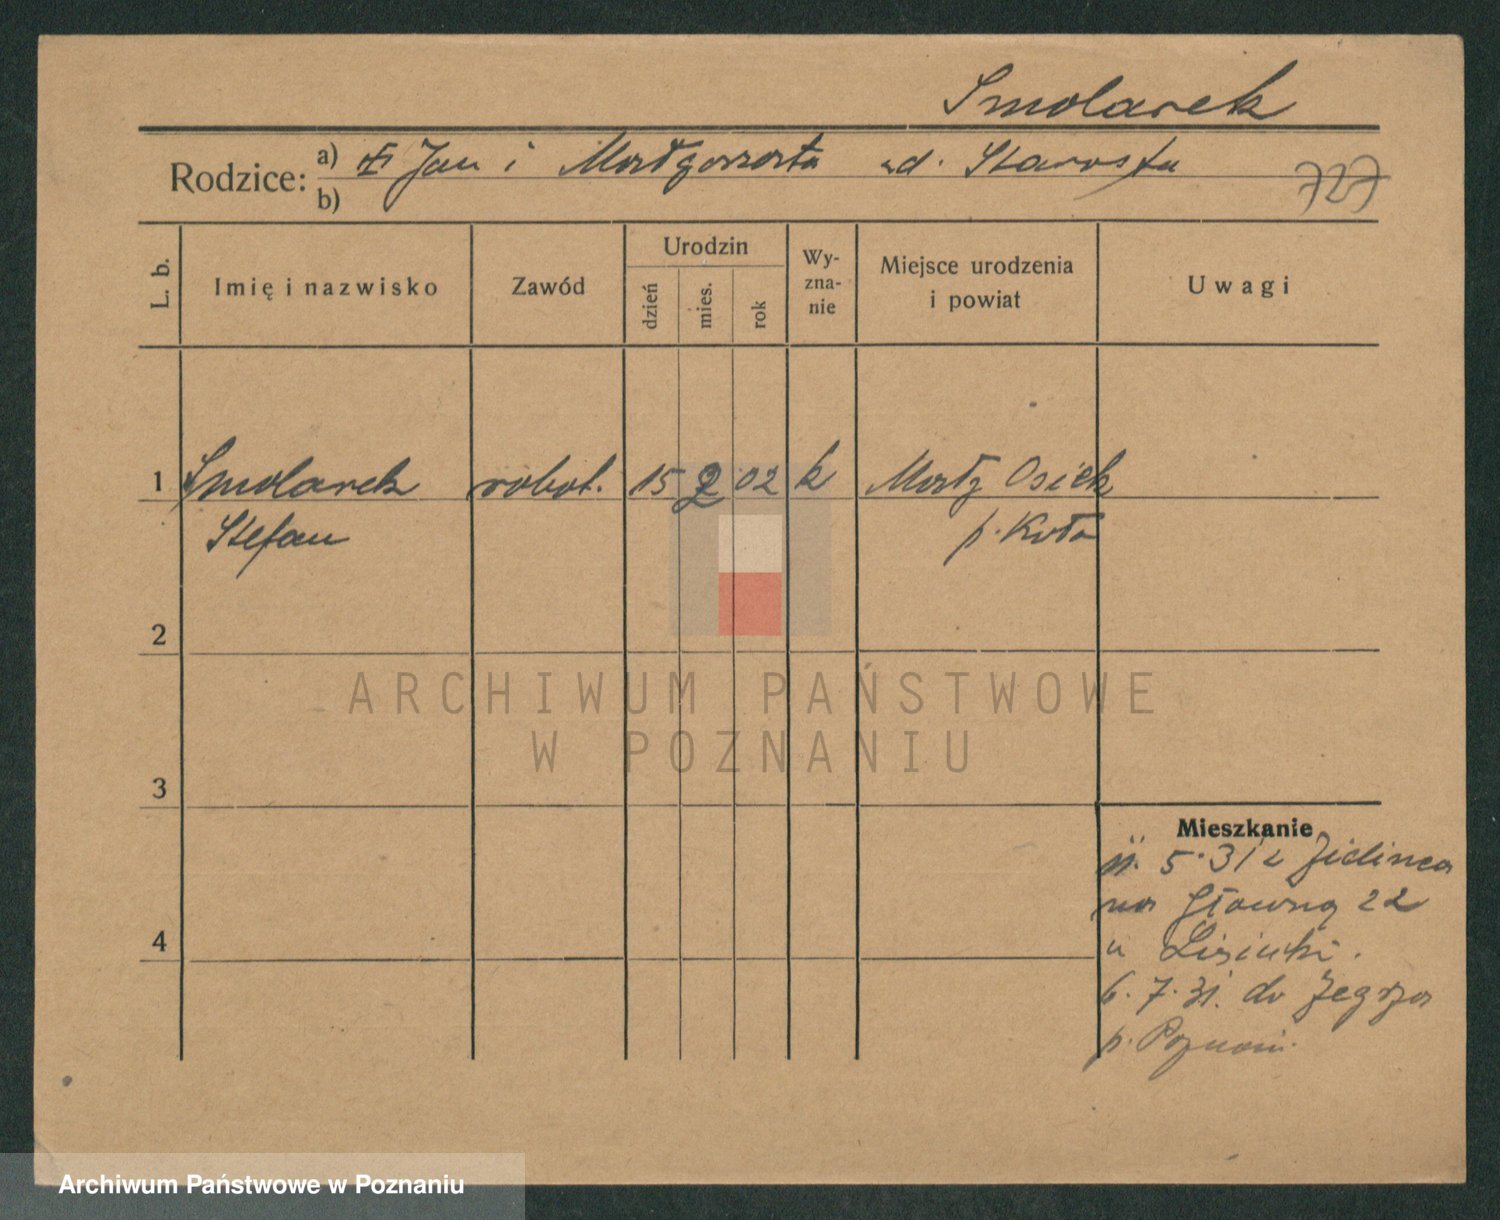 Smolarek
Rodzice: a) Jan i Małgorzata zd. Starosta
b)
727
L. b.
Imię i nazwisko
Zawód
Urodzin
dzień
mies.
rok
Wy-
zna-
nie
Miejsce urodzenia
i powiat
Uwagi
1 Smolarek robot. 15 2 02 k Mały Osiek
Stefan p. Koła
2
ARCHIWUM PAŃSTWOWE
W POZNANIU
3
Mieszkanie
5.31 z
na Główną 22
u
4
6.7.31. do Żegrza
p. Poznań.
Archiwum Państwowe w Poznaniu